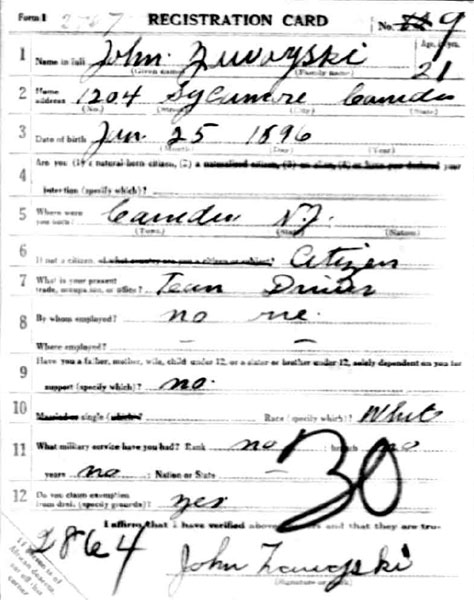 Form 1 2767 REGISTRATION CARD No. 9
1 Name in full John Age, in yrs.
(Given name) (Family name) 21
2 Home address 1204 Sycamore Camden
(No.) (Street) (City) (State)
3 Date of birth Jan. 25 1896
(Month) (Day) (Year)
4 Are you (1) a natural-born citizen, (2) a naturalized citizen, (3) an alien, (4) or have you declared your
intention (specify which)?
5 Where were you born? Camden N.J.
(Town) (State) (Nation)
6 If not a citizen, of what country are you a citizen or subject? Citizen
7 What is your present trade, occupation, or office? Team Driver
8 By whom employed? no ne.
Where employed? — —
9 Have you a father, mother, wife, child under 12, or a sister or brother under 12, solely dependent on you for
support (specify which)? no.
10 Married or single (which)? Race (specify which)? White
11 What military service have you had? Rank no ; branch no
years no ; Nation or State —
30
12 Do you claim exemption from draft (specify grounds)? yes
I affirm that I have verified above and that they are true.
2864 John
If person is of African descent, cut off this corner